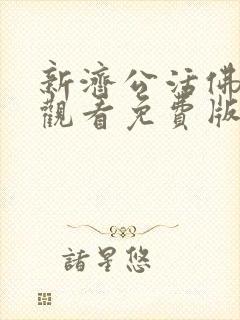 新濟公活佛
觀看免費版
諸星悠